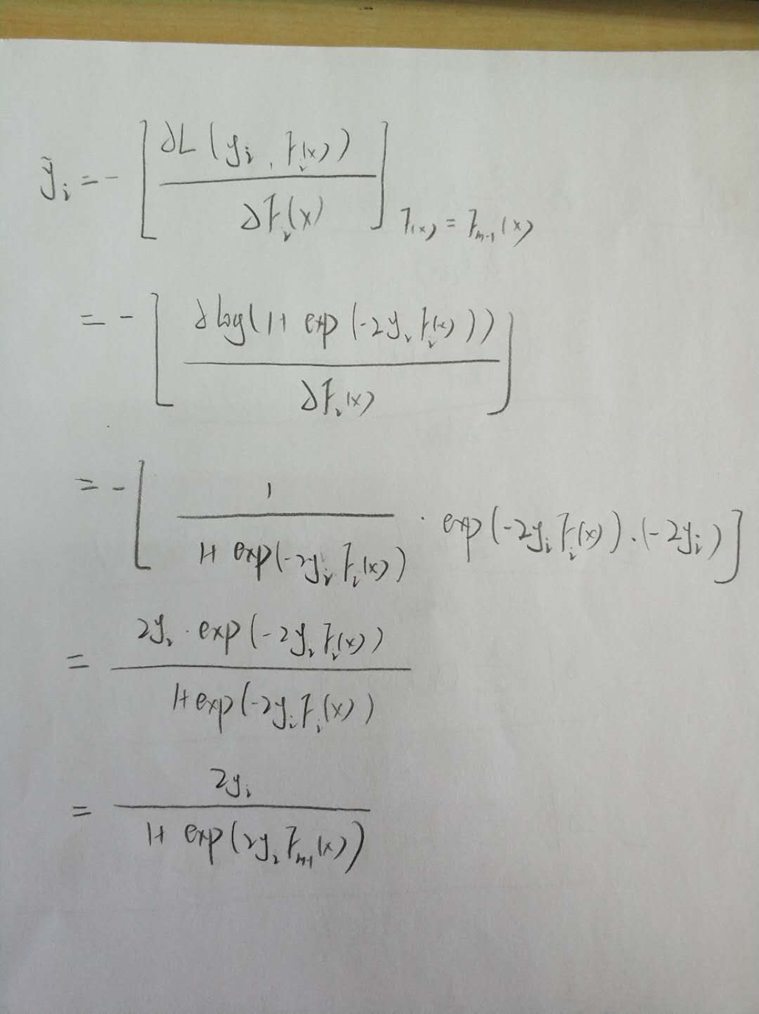 ỹᵢ = - [ ∂L(yᵢ, Fᵢ(x)) / ∂Fᵢ(x) ] F(x) = Fₘ₋₁(x)
= - [ ∂log(1+ exp(-2yᵢFᵢ(x))) / ∂Fᵢ(x) ]
= - [ 1 / (1+ exp(-2yᵢFᵢ(x))) · exp(-2yᵢFᵢ(x)) · (-2yᵢ) ]
= 2yᵢ · exp(-2yᵢFᵢ(x)) / (1+exp(-2yᵢFᵢ(x)))
= 2yᵢ / (1+ exp(2yᵢFₘ₋₁(x)))